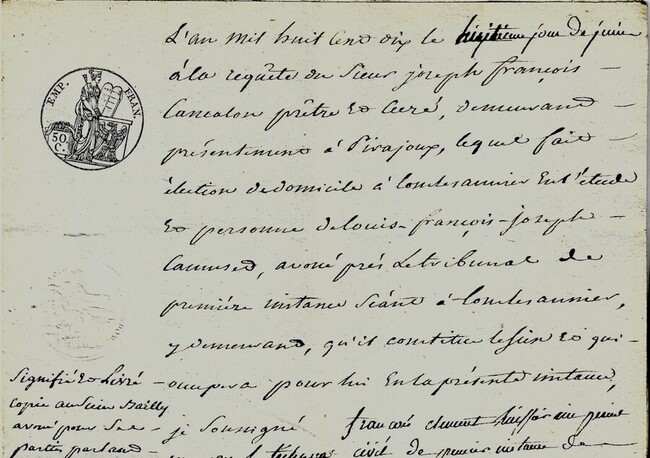 EMP. FRAN.
50
C.
L'an mil huit cent dix le huitieme jour de juin
à la requête du sieur joseph françois
Cancalon prêtre et curé, demeurand
présentement à Pirajoux, lequel fait
élection de domicile à lonslesaunier en l'étude
et personne de louis-françois-joseph
Camuset, avoué près le tribunal de
première instance séant à lonslesaunier,
y demeurand, qu'il constitue le sien et qui
occupera pour lui en la présente instance,
je soussigné françois clement huissier
civil de premier instance de
Signifié et livré
copie au sieur Bailly
avoué pour Sa
partie parland